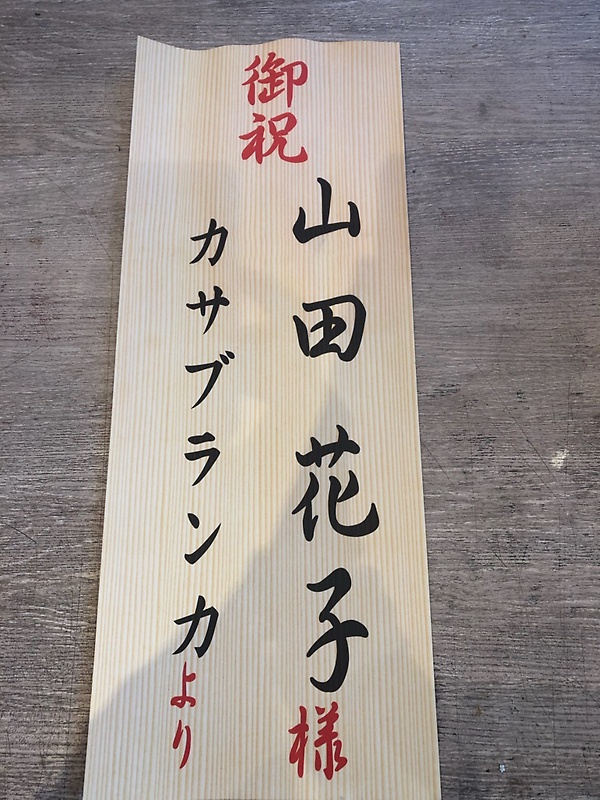 御祝
山田花子様
カサブランカより